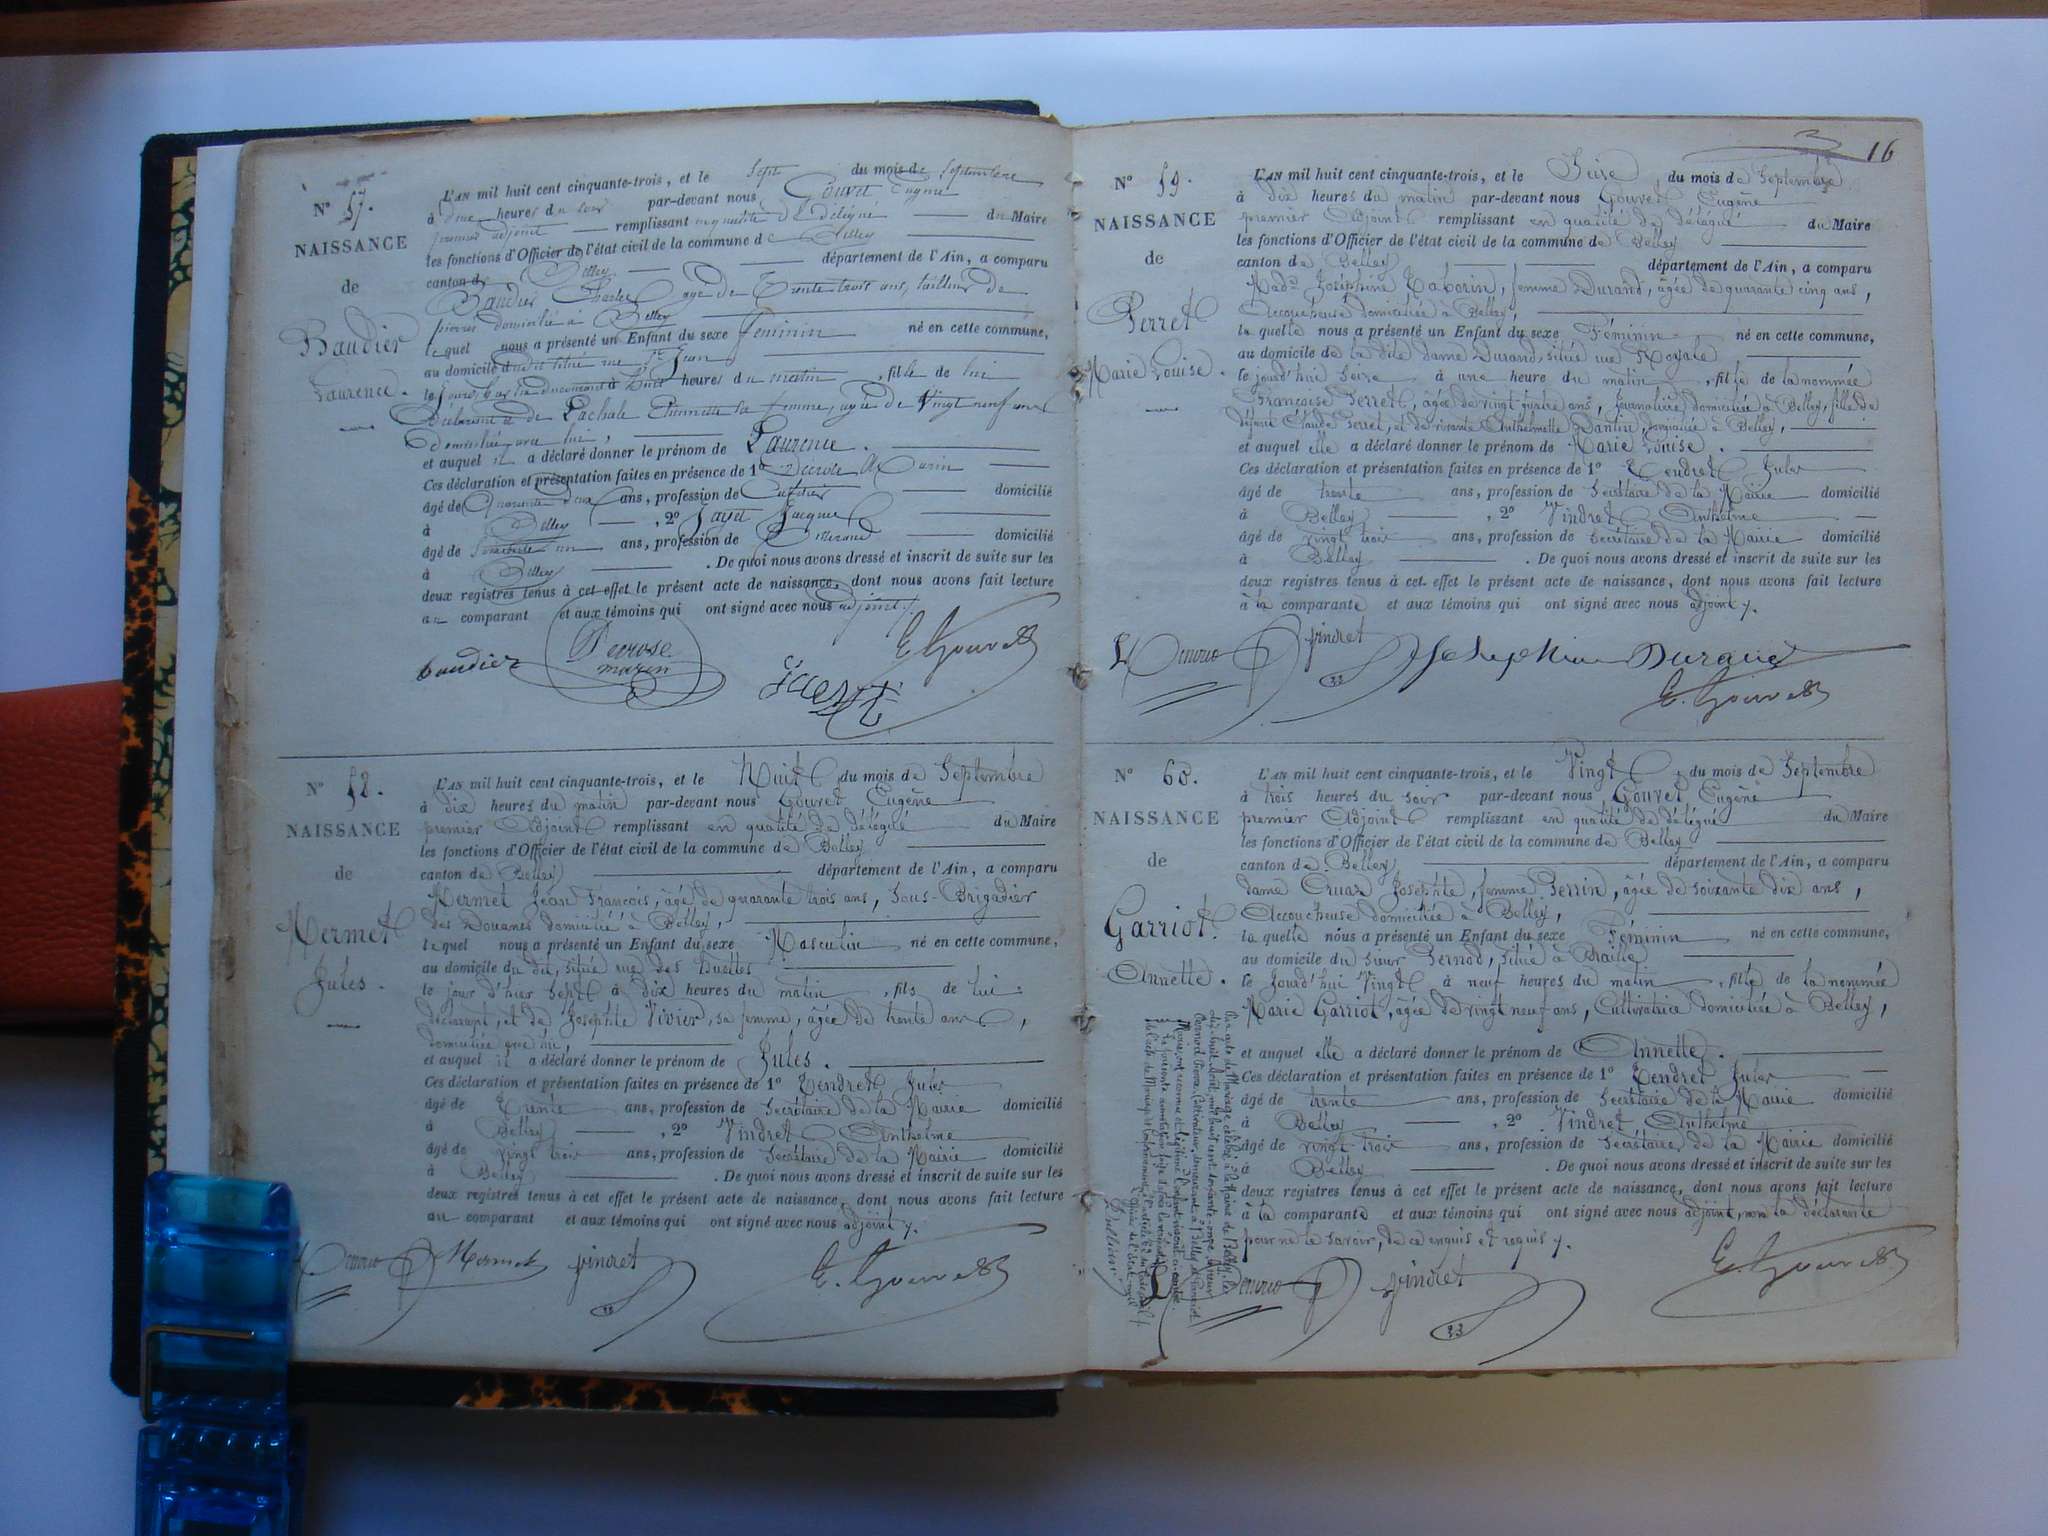 N° 57.
NAISSANCE
de
Baudier
Laurence.
L'AN mil huit cent cinquante-trois, et le Sept du mois de Septembre
à heures du soir par-devant nous Gouvet Eugène
premier adjoint remplissant en qualité de délégué du Maire
les fonctions d'Officier de l'état civil de la commune de Belley
canton de Belley département de l'Ain, a comparu
Baudier Charles agé de Trente trois ans, tailleur de
pierres domicilié à Belley
lequel nous a présenté un Enfant du sexe Féminin né en cette commune,
au domicile situé rue St Jean
heures du matin, fille de lui
Déclarant et de Etiennette sa femme, agée de Vingt neuf ans
domiciliée avec lui,
et auquel il a déclaré donner le prénom de Laurence.
Ces déclaration et présentation faites en présence de 1° Decrose Marin
âgé de Quarante deux ans, profession de domicilié
à Belley, 2° Jayet Jacques
âgé de ans, profession de domicilié
à Belley. De quoi nous avons dressé et inscrit de suite sur les
deux registres tenus à cet effet le présent acte de naissance, dont nous avons fait lecture
au comparant et aux témoins qui ont signé avec nous adjoint.
baudier Decrose marin E. Gouvet
N° 58.
NAISSANCE
de
Mermet
Jules.
L'AN mil huit cent cinquante-trois, et le Huit du mois de Septembre
à dix heures du matin par-devant nous Gouvet Eugène
premier Adjoint remplissant en qualité de délégué du Maire
les fonctions d'Officier de l'état civil de la commune de Belley
canton de Belley département de l'Ain, a comparu
Mermet Jean François, âgé de quarante trois ans, Sous-Brigadier
des Douanes domicilié à Belley,
lequel nous a présenté un Enfant du sexe Masculin né en cette commune,
au domicile du dit, situé rue des
le jour d'hier Sept à dix heures du matin, fils de lui
déclarant, et de Josephte Vivier, sa femme, âgée de trente ans,
domiciliée avec lui,
et auquel il a déclaré donner le prénom de Jules.
Ces déclaration et présentation faites en présence de 1° Tendret Jules
âgé de Trente ans, profession de Secrétaire de la Mairie domicilié
à Belley, 2° Vindret Anthelme
âgé de vingt trois ans, profession de Secrétaire de la Mairie domicilié
à Belley. De quoi nous avons dressé et inscrit de suite sur les
deux registres tenus à cet effet le présent acte de naissance, dont nous avons fait lecture
au comparant et aux témoins qui ont signé avec nous adjoint.
Mermet vindret E. Gouvet
16
N° 59.
NAISSANCE
de
Perret
Marie Louise.
L'AN mil huit cent cinquante-trois, et le Seize du mois de Septembre
à dix heures du matin par-devant nous Gouvet Eugène
premier Adjoint remplissant en qualité de délégué du Maire
les fonctions d'Officier de l'état civil de la commune de Belley
canton de Belley département de l'Ain, a comparu
Mad.e Joséphine Taborin, femme Durand, âgée de quarante cinq ans,
Accoucheuse domiciliée à Belley,
la quelle nous a présenté un Enfant du sexe Féminin né en cette commune,
au domicile de la dite dame Durand, située rue Royale
le jourd'hui Seize à une heure du matin, fille de la nommée
Françoise Perret, âgée de vingt quatre ans, journalière, domiciliée à Belley, fille de
défunt Claude Perret, et de vivante Anthelmette Dantin, domiciliée à Belley,
et auquel elle a déclaré donner le prénom de Marie Louise.
Ces déclaration et présentation faites en présence de 1° Tendret Jules
âgé de trente ans, profession de Secrétaire de la Mairie domicilié
à Belley, 2° Vindret Anthelme
âgé de vingt trois ans, profession de Secrétaire de la Mairie domicilié
à Belley. De quoi nous avons dressé et inscrit de suite sur les
deux registres tenus à cet effet le présent acte de naissance, dont nous avons fait lecture
à la comparante et aux témoins qui ont signé avec nous adjoint.
vindret Josephine Durand
E. Gouvet
N° 60.
NAISSANCE
de
Garriot.
Annette.
L'AN mil huit cent cinquante-trois, et le Vingt du mois de Septembre
à trois heures du soir par-devant nous Gouvet Eugène
premier Adjoint remplissant en qualité de délégué du Maire
les fonctions d'Officier de l'état civil de la commune de Belley
canton de Belley département de l'Ain, a comparu
dame Cruaz Josephte, femme Perrin, âgée de soixante dix ans,
Accoucheuse domiciliée à Belley,
la quelle nous a présenté un Enfant du sexe Féminin né en cette commune,
au domicile du sieur Pernod, situé à
le jourd'hui Vingt à neuf heures du matin, fille de la nommée
Marie Garriot, âgée de vingt neuf ans, Cultivatrice domiciliée à Belley,
et auquel elle a déclaré donner le prénom de Annette.
Ces déclaration et présentation faites en présence de 1° Tendret Jules
âgé de trente ans, profession de Secrétaire de la Mairie domicilié
à Belley, 2° Vindret Anthelme
âgé de vingt trois ans, profession de Secrétaire de la Mairie domicilié
à Belley. De quoi nous avons dressé et inscrit de suite sur les
deux registres tenus à cet effet le présent acte de naissance, dont nous avons fait lecture
à la comparante et aux témoins qui ont signé avec nous adjoint, non la déclarante
pour ne le savoir, de ce enquis et requis.
vindret E. Gouvet
Par acte de Mariage célébré à la Mairie de Belley, le